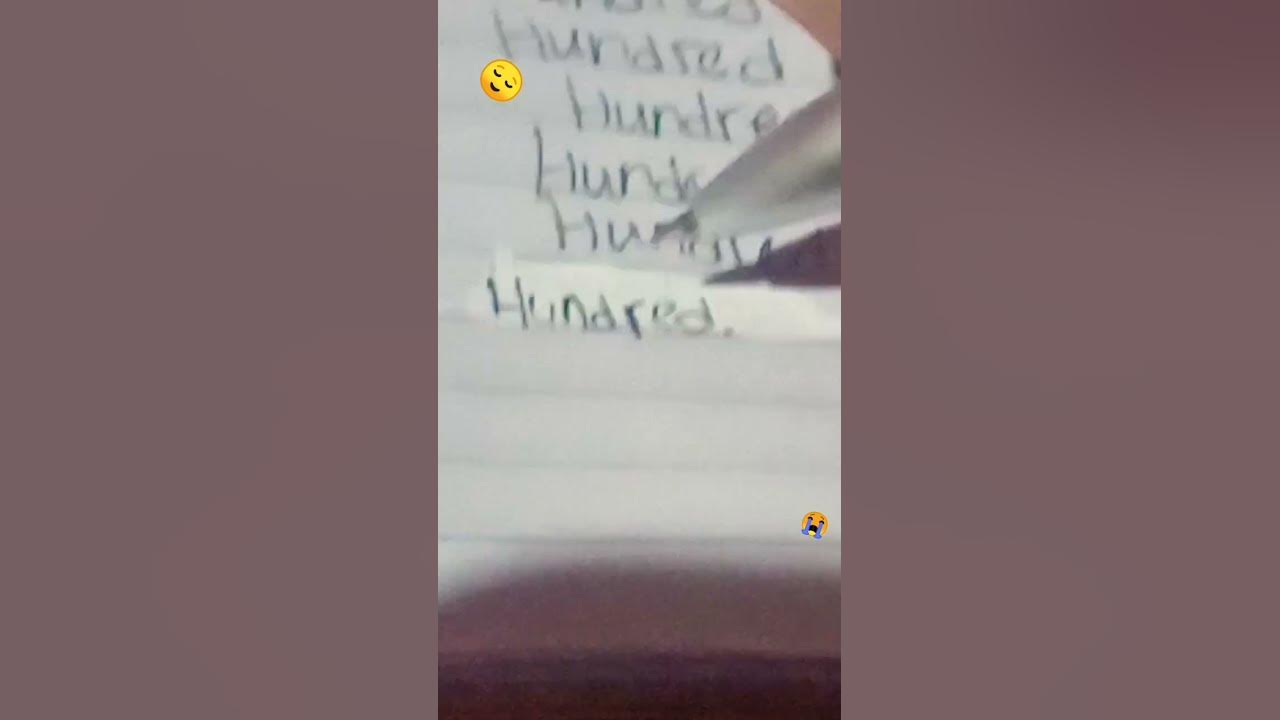 Hundred
Hundre
Hund
Hund
Hundred.